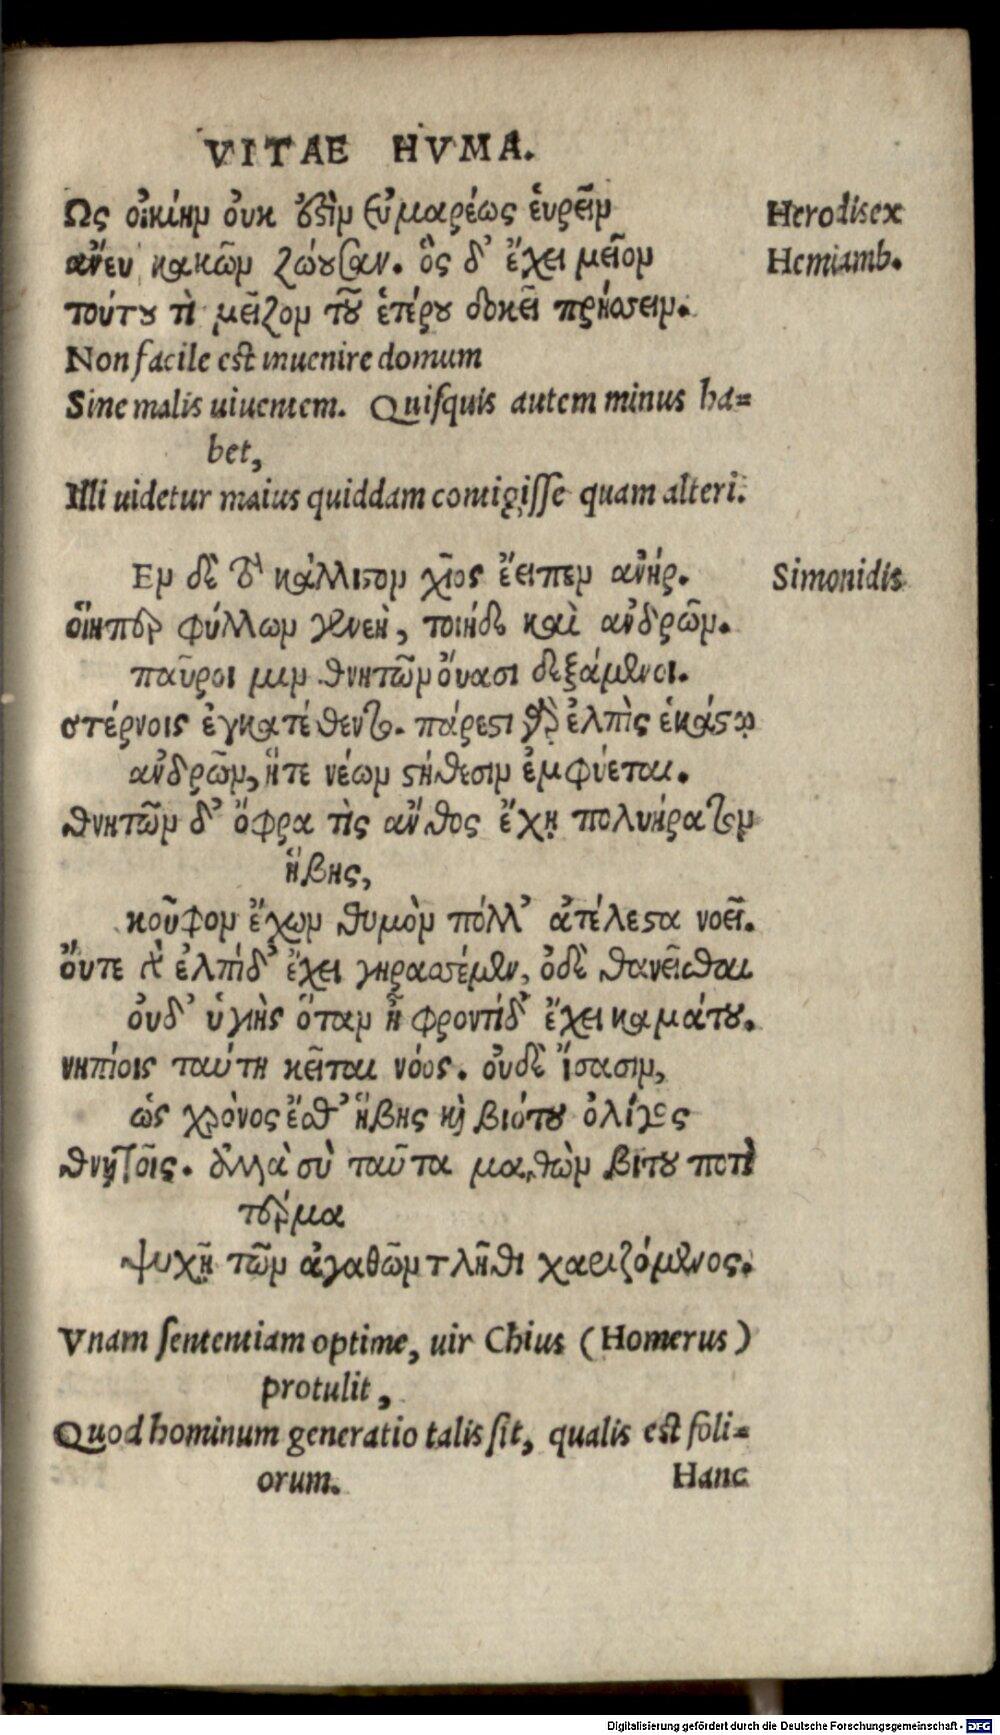 VITAE HVMA.
Ως οἰκίην ὀυκ ὅϛιν ἐυμαρέως ἑυρεῖν
Herodis ex
ἄνευ κακῶν ζώουσαν. ὃς δ' ἔχει μεῖον
Hemiamb.
τούτου τὶ μεῖζον τοῦ ἑτέρου δοκεῖ πρήσσειν.
Non facile est inuenire domum
Sine malis uiuentem. Quisquis autem minus ha=
bet,
Illi uidetur maius quiddam contigisse quam alteri.
Εν δὲ τὸ κάλλιϛον χῖος ἔειπεν ἀνήρ.
Simonidis
ὅιηπερ φύλλων γενεὴ, τοιήδε καὶ ἀνδρῶν.
παῦροι μιν θνητῶν ὄυασι δεξάμενοι.
στέρνοις ἐγκατέθεντο. πάρεϛι γὰρ ἐλπὶς ἑκάϛῳ
ἀνδρῶν, ἥτε νέων ϛήθεσιν ἐμφύεται.
θνητῶν δ' ὄφρα τὶς ἄνθος ἔχῃ πολυήρατον
ἥβης,
κοῦφον ἔχων θυμὸν πόλλ' ἀτέλεϛα νοεῖ.
ὄυτε γὰρ ἐλπίδ' ἔχει γηρασσέμεν, ὀδὲ θανεῖσθαι
ὀυδ' ὑγιὴς ὅταν ἦ φροντίδ' ἔχει καμάτου.
νηπίοις ταύτη κεῖται νόος. ὀυδὲ ἴσασιν,
ὡς χρόνος ἔσθ' ἥβης καὶ βιότου ὀλίγος
θνητοῖς. ἀλλὰ σὺ ταῦτα μαθὼν βιτου ποτὶ
τέρμα
ψυχῇ τῶν ἀγαθῶν τλῆθι χαριζόμενος.
Vnam sententiam optime, uir Chius (Homerus)
protulit,
Quod hominum generatio talis sit, qualis est foli=
orum.
Hanc
Digitalisierung gefördert durch die Deutsche Forschungsgemeinschaft - DFG